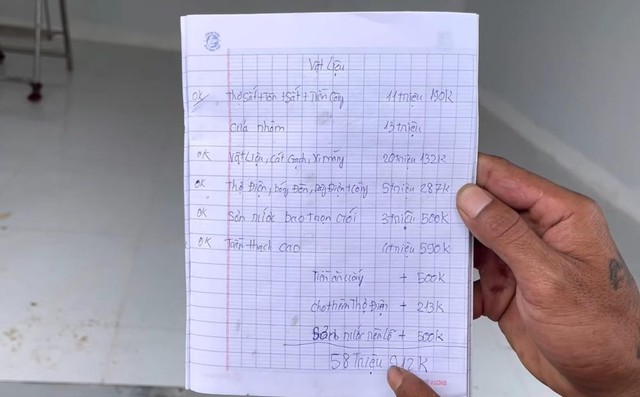 Vật Liệu
OK Thợ Sắt + Tôn + Sắt + Tiền Công 11 triệu 190K
Cửa nhôm 13 triệu
OK Vật Liệu, Cát Gạch, Xi măng 20 triệu 132K
OK Thợ Điện, bóng Đèn, Dây Điện + Công 5 triệu 287K
OK Sơn nước bao trọn gói 3 triệu 500K
OK Trần thạch cao 4 triệu 590K
Tiền ăn uống + 500K
Cho thêm Thợ Điện + 213K
nước nền + 500K
58 Triệu 912K